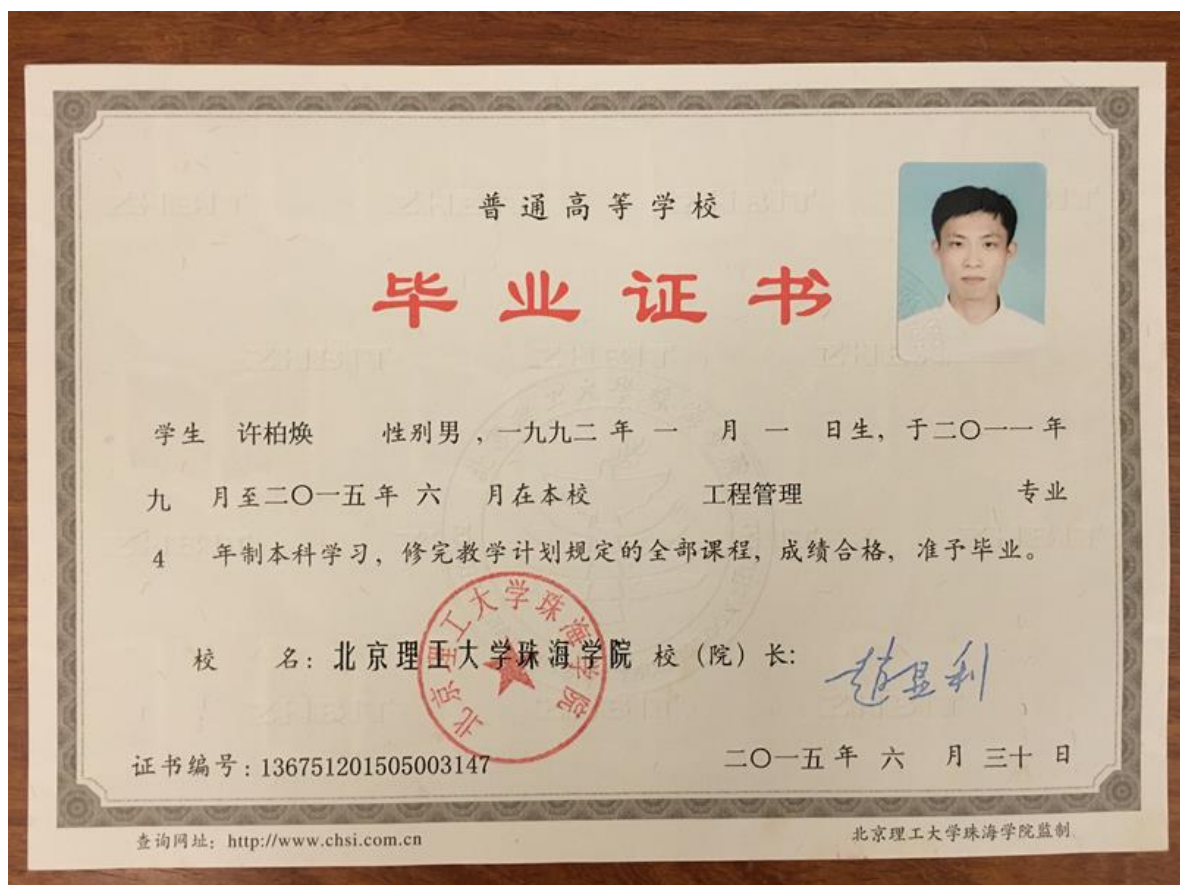 普通高等学校
毕业证书
学生 许柏焕 性别男，一九九二年 一 月 一 日生，于二〇一一年
九 月至二〇一五年 六 月在本校 工程管理 专业
4 年制本科学习，修完教学计划规定的全部课程，成绩合格，准予毕业。
校 名：北京理工大学珠海学院 校（院）长：赵显利
北京理工大学珠海学院
证书编号：136751201505003147
二〇一五年 六 月 三十 日
查询网址：http://www.chsi.com.cn
北京理工大学珠海学院监制